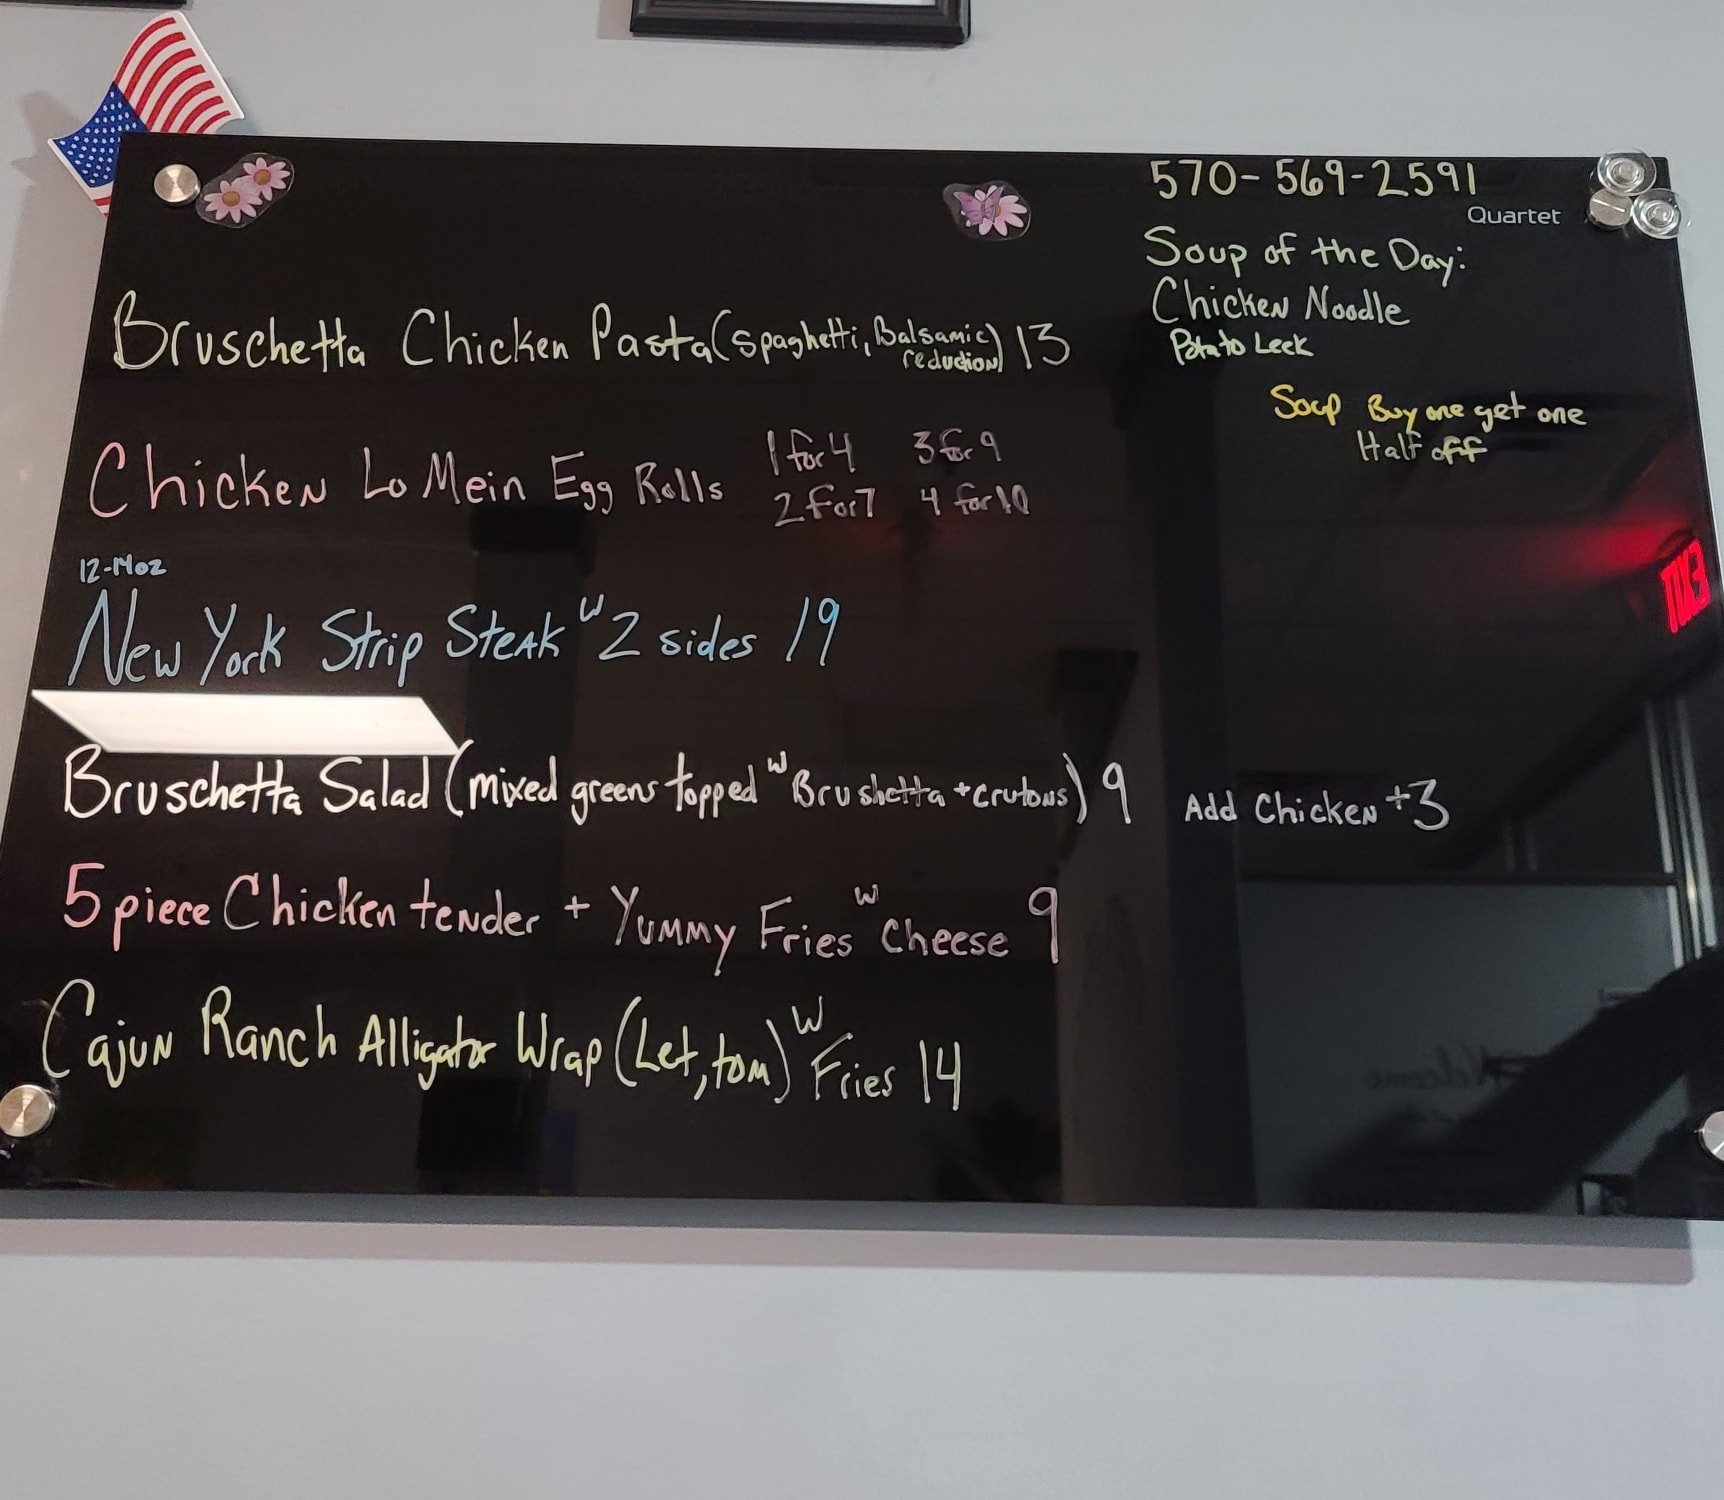 570-569-2591
Quartet
Soup of the Day:
Chicken Noodle
Potato Leek
Soup Buy one get one
Half off
Bruschetta Chicken Pasta (Spaghetti, Balsamic reduction) 13
Chicken Lo Mein Egg Rolls 1 for 4 3 for 9
2 for 7 4 for 10
12-14oz
New York Strip Steak w 2 sides 19
Bruschetta Salad (mixed greens topped w Brushetta + crutons) 9 Add Chicken +3
5 piece Chicken tender + Yummy Fries w Cheese 9
Cajun Ranch Alligator Wrap (Let, tom) w Fries 14
EXIT
Welcome